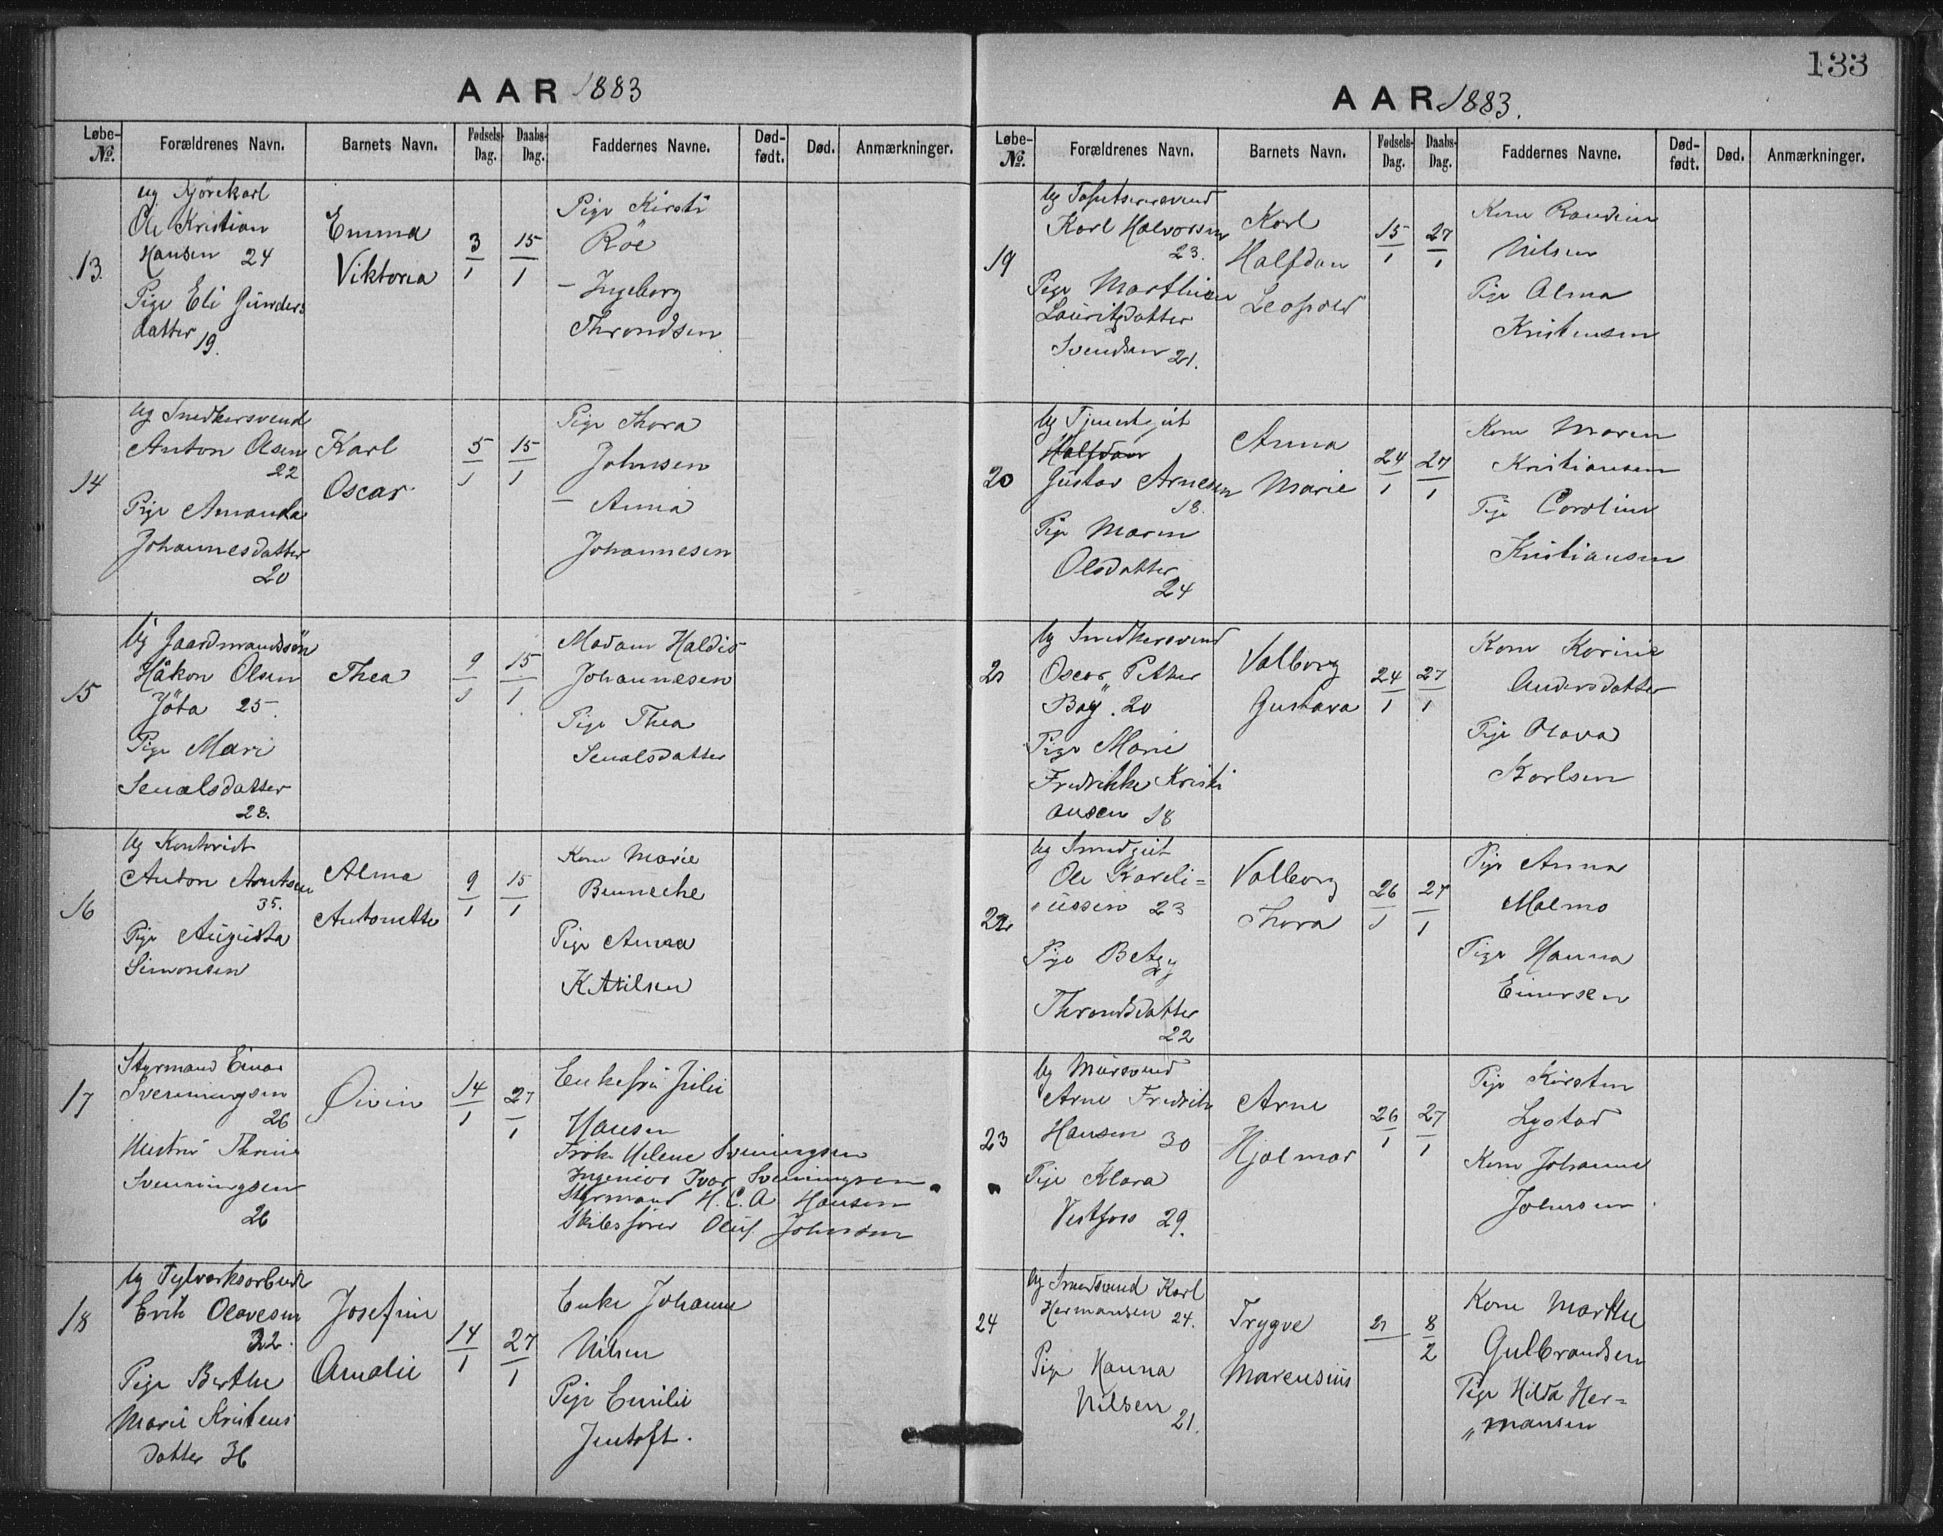 AAR 1883
Løbe-№. Forældrenes Navn. Barnets Navn. Fødsels-Dag. Daabs-Dag. Faddernes Navne. Død-født. Død. Anmærkninger.
13
Ug Kjørekarl
Ole Kristian
Hansen 24
Pige Eli Gunders
datter 19.
Emma
Viktoria
3/1
15/1
Pige Kirsti
Röe
— Ingeborg
Throndsen
14
Ug Snedkersvend
Anton Olsen
22
Pige Amanda
Johannesdatter
20
Karl
Oscar
5/1
15/1
Pige Thora
Johnsen
— Anna
Johannesen
15
Ug Gaardmandssøn
Håkon Olsen
25
Pige Mari
datter
28.
Thea
9/1
15/1
Madam
Johannesen
Pige Thea
datter
16
Ug
Anton Arntsen
35.
Pige Augusta
Simonsen
Alma
Antonette
9/1
15/1
Kone Marie
Bennecke
Pige Anna
Ketilsen
17
Styrmand Einar
Svenningsen
26
Hustru Thrine
Svenningsen
26
Øivin
14/1
27/1
Enkefru Julie
Hansen
Frøken Helene Svenningsen
Ingeniør Ivar Svenningsen
Styrmand H. C. A Hansen
Skibsfører Oluf Johnsen
18
Ug Teglverksarbeid
Erik Olavesen
32.
Pige Berthe
Marie Kristens
datter 36
Josefine
Amalie
14/1
27/1
Enke Johanne
Nilsen
Pige Emilie
Jentoft.
133
AAR 1883.
Løbe-№. Forældrenes Navn. Barnets Navn. Fødsels-Dag. Daabs-Dag. Faddernes Navne. Død-født. Død. Anmærkninger.
19
Ug Tapetserersvend
Karl Halvorsen
23.
Pige Marthine
Lauritzdatter
Svendsen 21.
Karl
Halfdan
Leopold
15/1
27/1
Kone Randine
Nilsen
Pige Alma
Kristensen
20
Ug Tjenestgut
Halfdan
Gustav Arnesen
18.
Pige Maren
Olsdatter
24
Anna
Marie
24/1
27/1
Kone Maren
Kristiansen
Pige Caroline
Kristiansen
21
Ug Snedkersvend
Oscar Petter
Bøy. 20
Pige Marie
Fredrikke Kristi
ansen 18
Valborg
Gustava
24/1
27/1
Kone Karine
Andersdatter
Pige Olava
Karlsen
22
Ug Smedgut
Ole Kareli=
ussen 23
Pige Betzy
Throndsdatter
22
Valborg
Thora
26/1
27/1
Pige Anna
Malmo
Pige Hanna
Einersen
23
Ug Mursvend
Arne Fredrik
Hansen 30
Pige Klara
Vestfoss 29.
Arne
Hjalmar
26/1
27/1
Pige Kirsten
Lystad
Kone Johanne
Johnsen
24
Ug Smedsvend Karl
Hermansen 24.
Pige Hanna
Nilsen
21.
Trygve
Marensius
21
8/2
Kone Marthe
Gulbrandsen
Pige Hilda Her=
„mansen